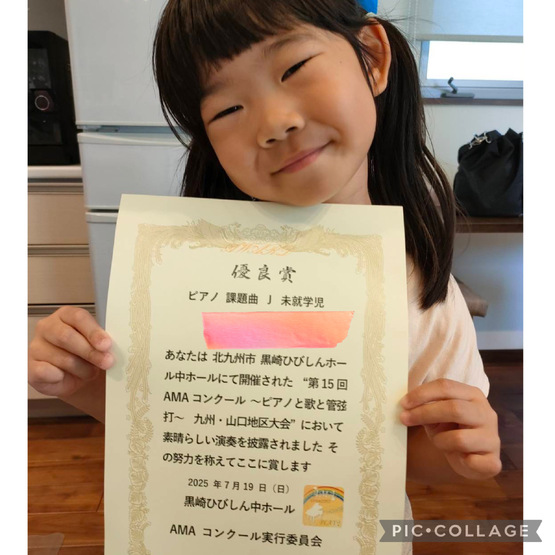 優良賞
ピアノ 課題曲 J 未就学児
あなたは 北九州市 黒崎ひびしんホー
ル中ホールにて開催された “第15回
AMAコンクール ～ピアノと歌と管弦
打～ 九州・山口地区大会”において
素晴らしい演奏を披露されました そ
の努力を称えてここに賞します
2025 年 7 月 19 日（日）
黒崎ひびしん中ホール
AMA コンクール実行委員会
PIC•COLLAGE